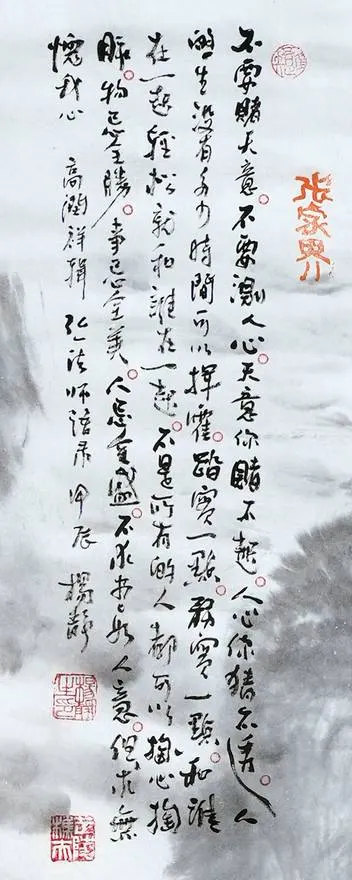 张家界
不要賭天意。不要測人心。天意你賭不起。人心你猜不透。人
的生没有多少時間可以揮霍。踏實一點。務實一點。和誰
在一起輕松就和誰在一起。不是所有的人都可以掏心掏
肺。物忌全勝。事忌全美。人忌全盛。不求尽如人意。但求無
愧我心 高潤祥輯 弘一法師語录 甲辰 楊靜